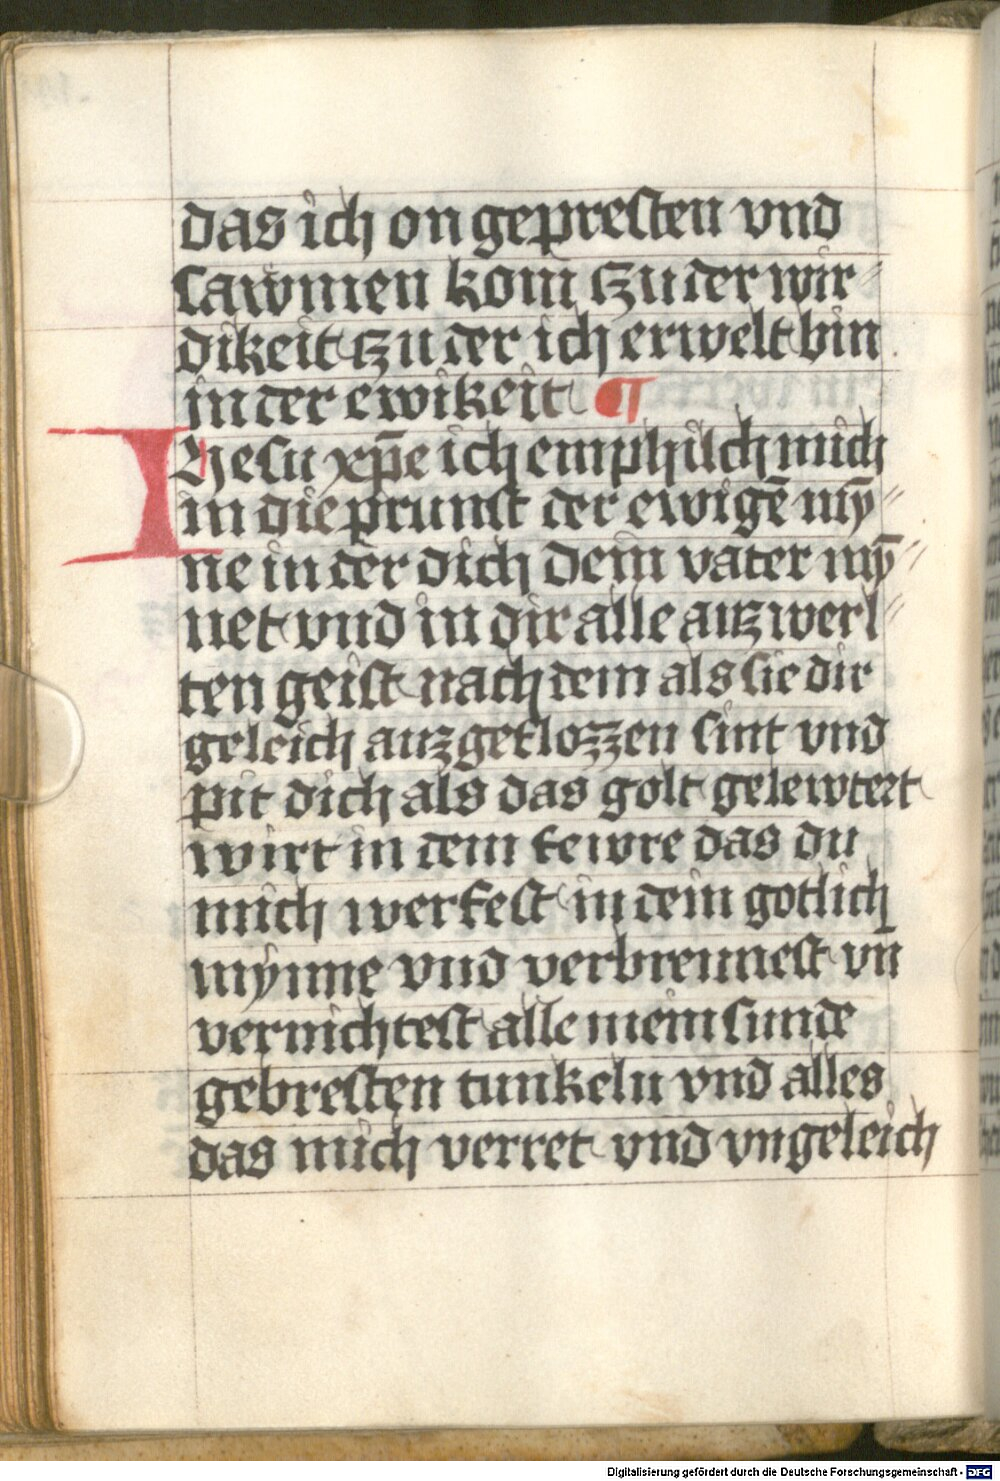 das ich on gepresten vnd
sawmen kom czu der wir⸗
dikeit czu der ich erwelt bin
in der ewikeit ¶
Ihesu xp̄e ich emphilch mich
in die prunst der ewigē mȳ⸗
ne in der dich dein vater mȳ⸗
net vnd in dir alle auzwerl⸗
ten geist nach dem als sie dir
geleich auzgeflozzen sint vnd
pit dich als das golt gelewtert
wirt in dem fewre das du
mich werfest in dein gotlich
mynne vnd verbrennest vn̄
vernichtest alle mein sunde
gebresten tunkeln vnd alles
das mich verret vnd vngeleich
Digitalisierung gefördert durch die Deutsche Forschungsgemeinschaft - DFG